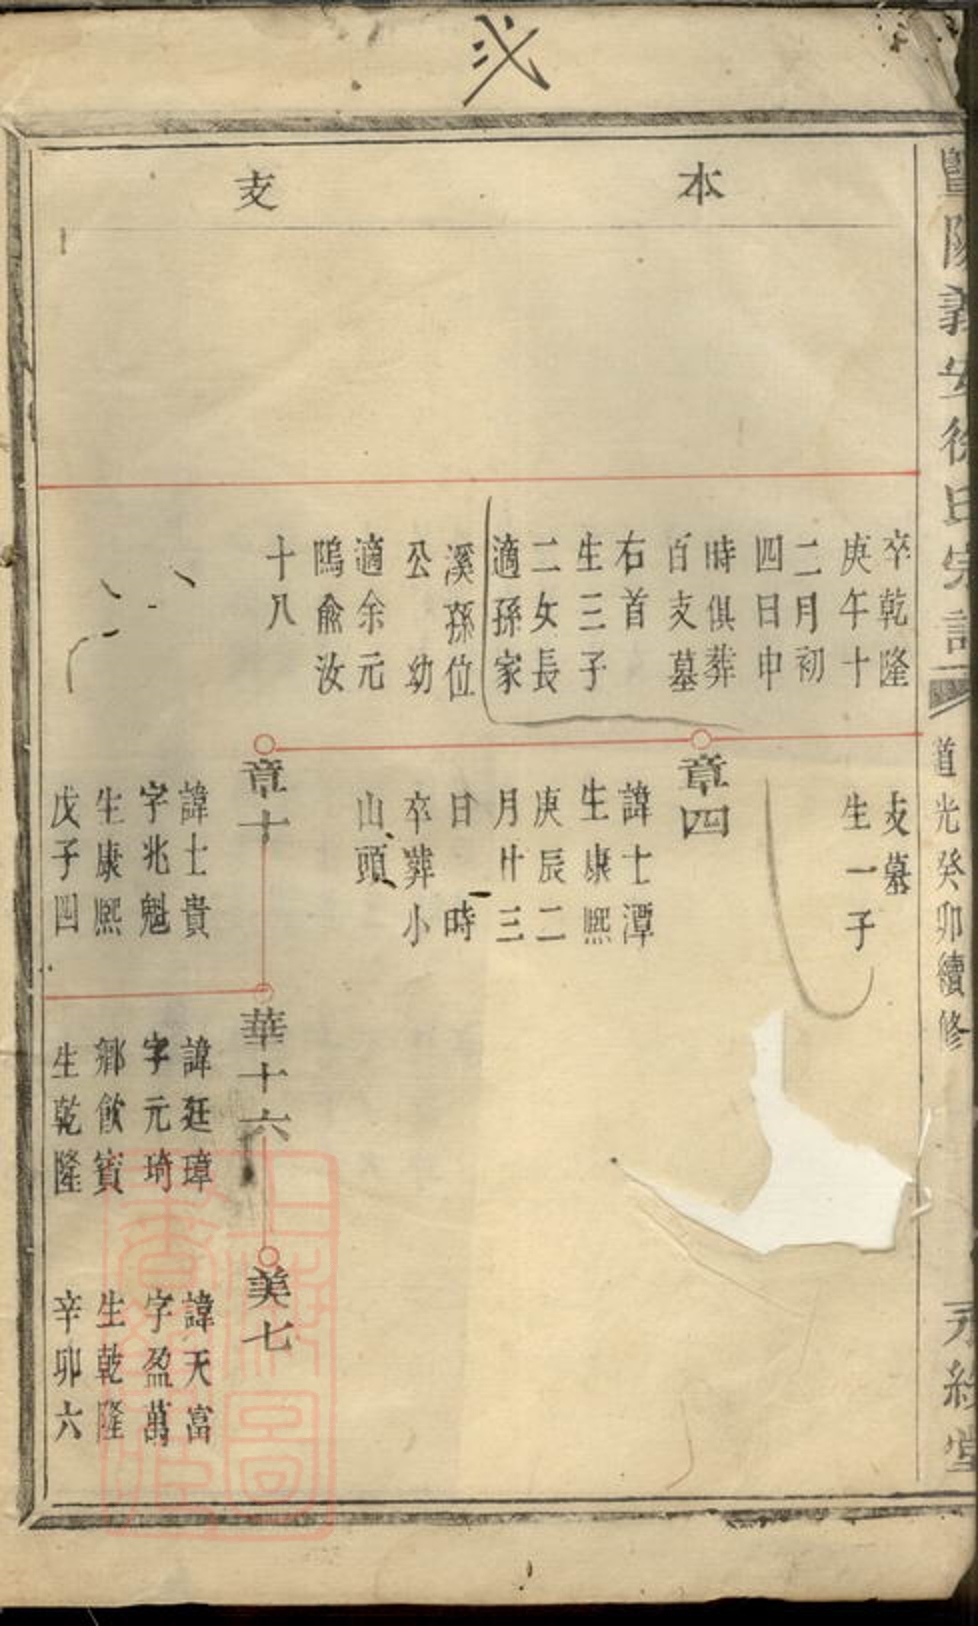 弍
暨陽義安徐氏宗譜
道光癸卯續修
本
支
卒乾隆
庚午十
二月初
四日申
時俱葬
百支墓
右首
生三子
二女長
適孫家
溪孫位
公 幼
適余元
塢俞汝
十八
支墓
生一子
章四
諱士潭
生康熙
庚辰二
月廿三
日 時
卒葬小
山頭
章十
諱士貴
字兆魁
生康熙
戊子四
華十六
諱廷璋
字元琦
鄉飲賓
生乾隆
美七
諱天富
字盈萬
生乾隆
辛卯六